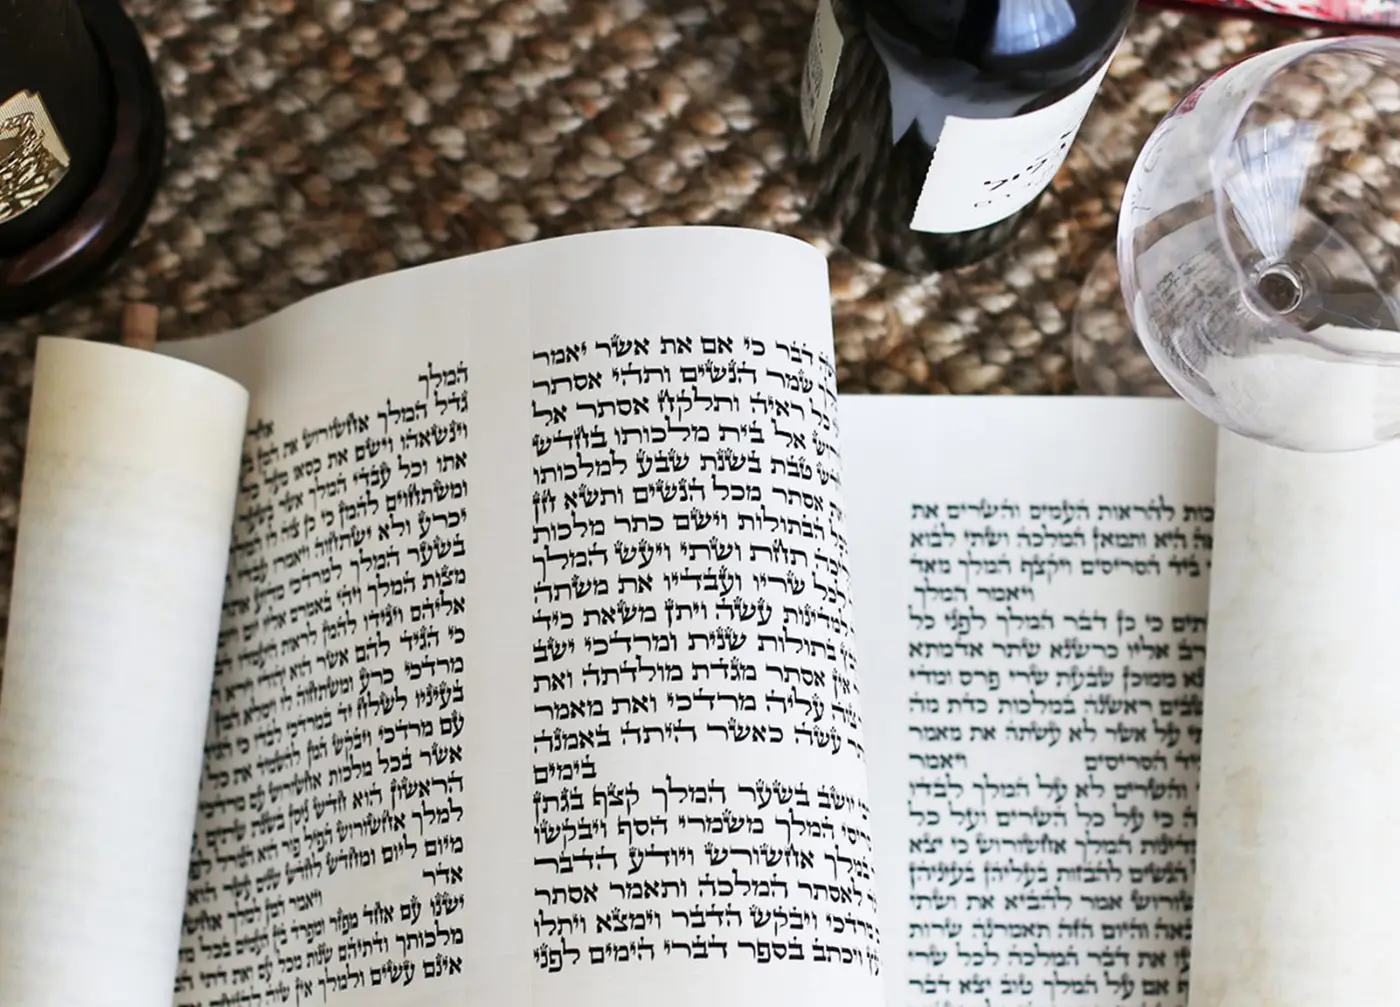 היא ותמאן המלכה ושתי לבוא
להראות העמים והשרים את
ביד הסריסים ויקצף המלך מאד
ויאמר המלך
כי כן דבר המלך לפני כל
אליו כרשנא שתר אדמתא
ממוכן שבעת שרי פרס ומדי
ראשנה במלכות כדת מה
על אשר לא עשתה את מאמר
הסריסים ויאמר
והשרים לא על המלך לבדו
כי על כל השרים ועל כל
המלך אחשורוש כי יצא
הנשים להבזות בעליהן בעיניהן
אמר להביא את ושתי
והיום הזה תאמרנה שרות
את דבר המלכה לכל שרי
אם על המלך טוב יצא דבר
דבר כי אם את אשר יאמר
שמר הנשים ותהי אסתר
כל ראיה ותלקח אסתר אל
אל בית מלכותו בחדש
טבת בשנת שבע למלכותו
אסתר מכל הנשים ותשא חן
הבתולות וישם כתר מלכות
תחת ושתי ויעש המלך
לכל שריו ועבדיו את משתה
למדינות עשה ויתן משאת כיד
בתולות שנית ומרדכי ישב
אין אסתר מגדת מולדתה ואת
עליה מרדכי ואת מאמר
עשה כאשר היתה באמנה
בימים
יושב בשער המלך קצף בגתן
המלך משמרי הסף ויבקשו
אחשורש ויודע הדבר
לאסתר המלכה ותאמר אסתר
מרדכי ויבקש הדבר וימצא ויתלו
ויכתב בספר דברי הימים לפני
המלך אחר
גדל המלך אחשורוש את המן
וינשאהו וישם את כסאו מעל כל
אתו וכל עבדי המלך אשר בשער
ומשתחוים להמן כי כן צוה לו
יכרע ולא ישתחוה ויאמרו עבדי
בשער המלך למרדכי מדוע אתה
מצות המלך ויהי באמרם אליו יום
אליהם ויגידו להמן לראות היעמדו
כי הגיד להם אשר הוא יהודי וירא
מרדכי כרע ומשתחוה לו וימלא המן
בעיניו לשלח יד במרדכי לבדו כי
עם מרדכי ויבקש המן להשמיד את כל
אשר בכל מלכות אחשורוש עם מרדכי
הראשון הוא חדש ניסן בשנת שתים
למלך אחשורוש הפיל פור הוא
מיום ליום ומחדש לחדש שנים עשר הוא
אדר ויאמר המן למלך
ישנו עם אחד מפזר ומפרד בין העמים בכל
מלכותך ודתיהם שנות מכל עם ואת דתי
אינם עשים ולמלך אין שוה